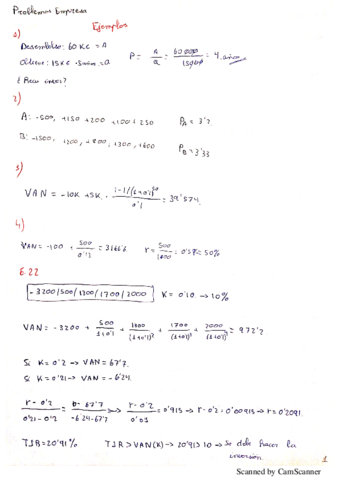 Problemas Empresa
Ejemplos
1)
Desembolso: 60K€ = A
Obtiene: 15K€ · 5 años = a
P = A/a = 60000/15000 = 4 años
¿Payback?
2)
A: -500, +150 +200 +100 +250 PA = 3'2
B: -1500, +200, +800, +300, +600 PB = 3'33
3)
VAN = -10K + 5K ·
4)
VAN = -100 + 500/0'12
6.22
-3200/500/1300/1700/2000 K = 0'10 → 10%
VAN = -3200 + 500/1+0'1 + 1300/(1+0'1)² + 1700/(1+0'1)³ + 2000/(1+0'1)⁴ = 972'2
Si K = 0'2 → VAN = 67'7.
Si K = 0'21 → VAN = -6'24.
r-0'2/0'21-0'2 = 0-67'7/-6'24-67'7 → r-0'2/0'01 = 0'915 → r-0'2 = 0'00915 → r = 0'2091.
TIR = 20'91% TIR > VAN(K) → 20'91 > 10 → Se debe hacer la
inversión
1
Scanned by CamScanner